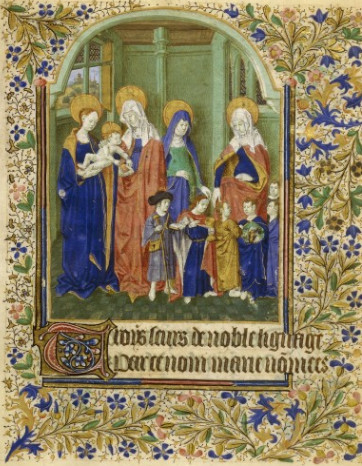 Trois seurs de noble lignage
Par ce nom marie nõmees